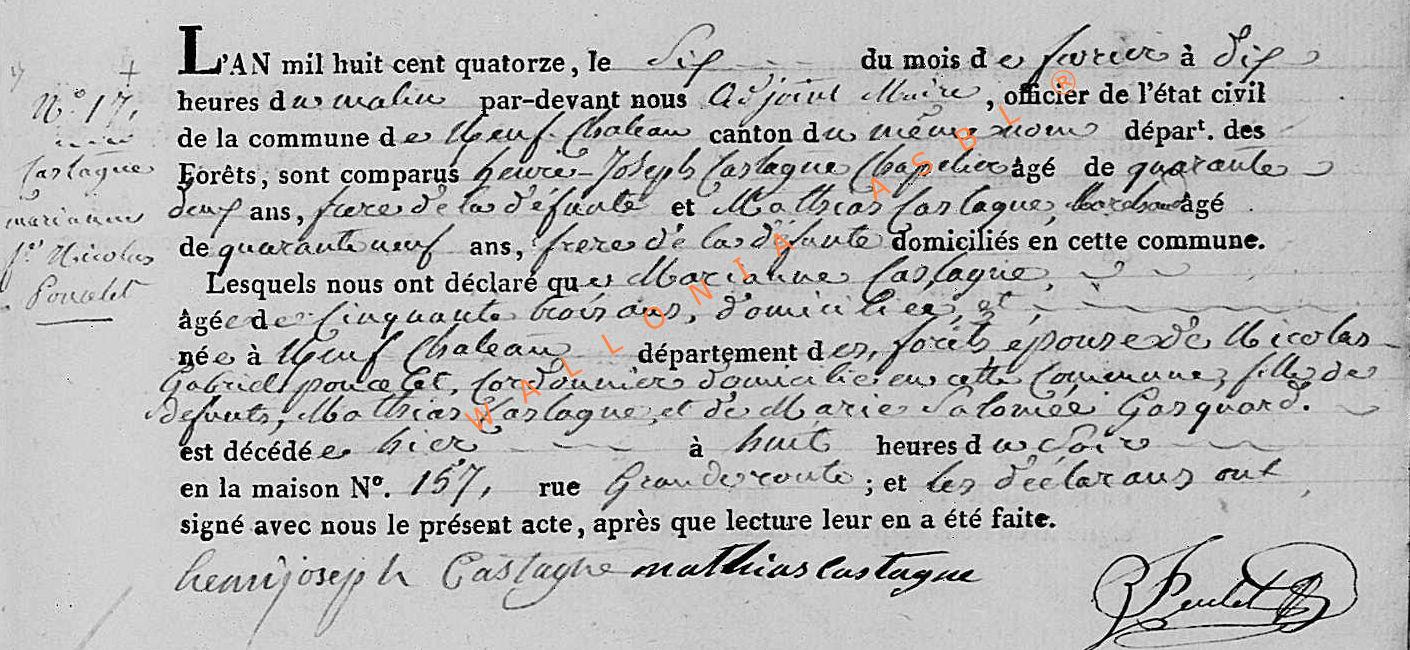 L'AN mil huit cent quatorze, le Six du mois de fevrier à Dix
N.° 17.
heures du matin par-devant nous Adjoint Maire, officier de l'état civil
de la commune de Neuf-Chateau canton du même nom départ. des
Castagne
Forêts, sont comparus henrie-Joseph Castagne Chapelier âgé de quarante
marianne
deux ans, frere de la défunte et Mathias Castagne, âgé
de quarante neuf ans, frere de la défunte domiciliés en cette commune.
f.e Nicolas
Lesquels nous ont déclaré que Marianne Castagne,
Poncelet
âgée de Cinquante trois ans, domiciliée, et
née à Neuf Chateau département des forêts épouse de Nicolas
Gabriel poncelet, Cordonnier domicilié en cette Commune, fille de
defunts, Mathias Castagne, et de Marie Salomée Gasquard.
est décédée hier à huit heures du Soir
en la maison N°. 157, rue Grande route; et les déclarans ont
signé avec nous le présent acte, après que lecture leur en a été faite.
henrijoseph Castagne mathias castagne
WALLONIA ASBL ®